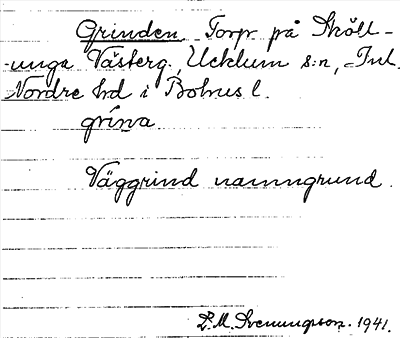 Grinden Torp på Sköll-
unga Västerg., Ucklum s:n, Inl.
Nordre hd i Bohus l.
grína
Väggrind namngrund.
S. M. Svenungsson. 1941.